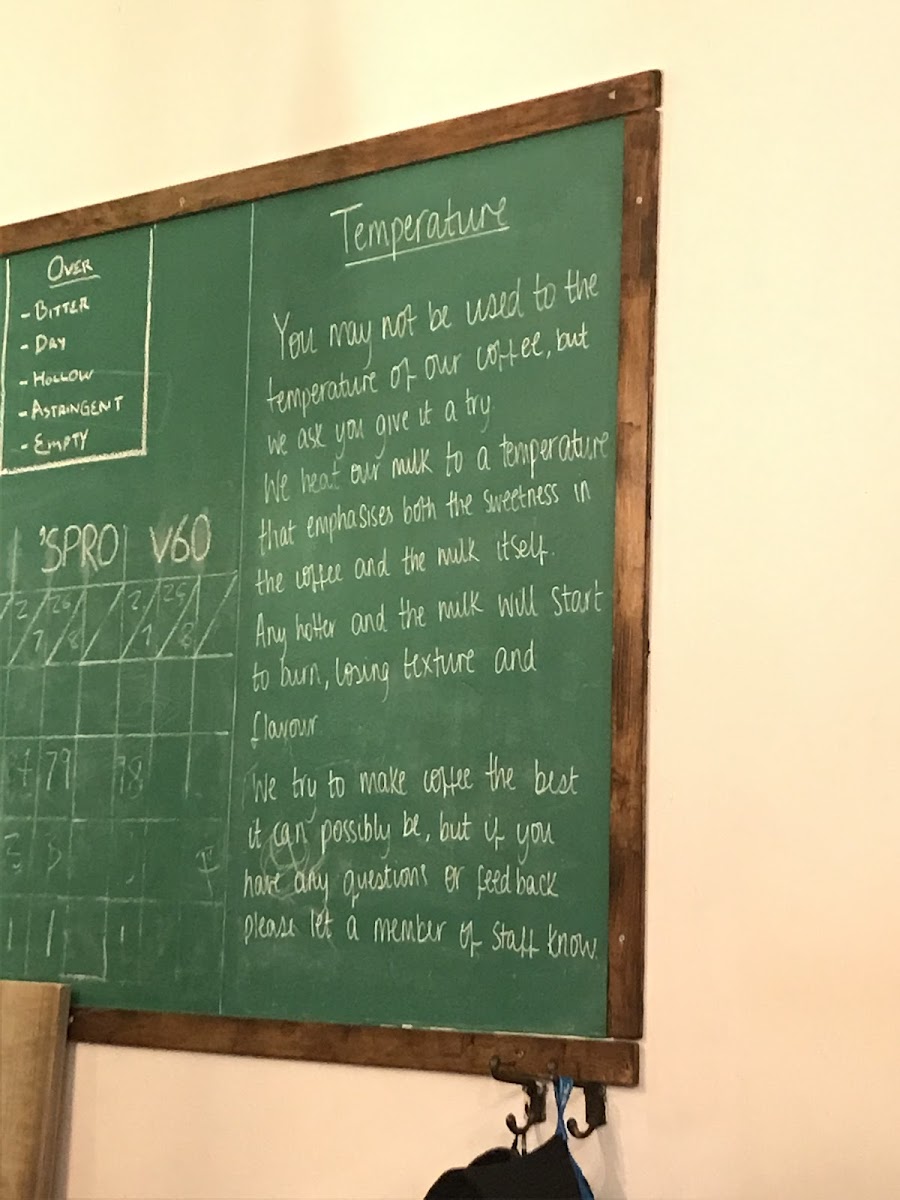 OVER
- BITTER
- DRY
- HOLLOW
- ASTRINGENT
- EMPTY
'SPRO V60
79
98
Temperature
You may not be used to the
temperature of our coffee, but
we ask you give it a try.
We heat our milk to a temperature
that emphasises both the sweetness in
the coffee and the milk itself.
Any hotter and the milk will start
to burn, losing texture and
flavour
We try to make coffee the best
it can possibly be, but if you
have any questions or feedback
please let a member of staff know.